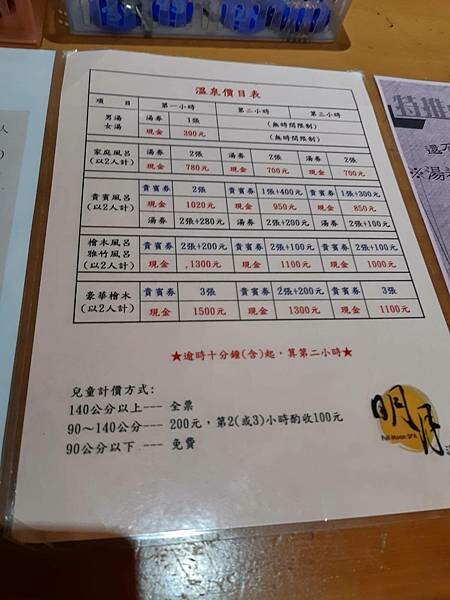 溫泉價目表
項 目 第一小時 第二小時 第三小時
男湯 湯券 1張 (無時間限制)
女湯 現金 300元 (無時間限制)
家庭風呂 湯券 2張 湯券 2張 湯券 2張
(以2人計) 現金 780元 現金 700元 現金 700元
貴賓風呂 貴賓券 2張 貴賓券 1張+400元 貴賓券 1張+300元
(以2人計) 現金 1020元 現金 950元 現金 850元
湯券 2張+280元 湯券 2張+200元 湯券 2張+100元
檜木風呂 貴賓券 2張+200元 貴賓券 2張+100元 貴賓券 2張+100元
雅竹風呂
(以2人計) 現金 1300元 現金 1100元 現金 1000元
豪華檜木 貴賓券 3張 貴賓券 2張+200元 貴賓券 3張
(以2人計) 現金 1500元 現金 1300元 現金 1100元
★逾時十分鐘(含)起,算第二小時★
兒童計價方式:
140公分以上--- 全票
90~140公分--- 200元,第2(或3)小時酌收100元
90公分以下 --- 免費
明月
Full Moon SPA
特推
還
※湯
人